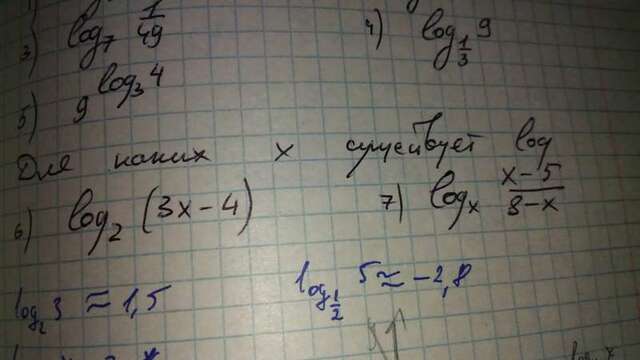 3) log₇ 1/49 4) log_{1/3} 9
5) 9^{log₃ 4}
Для каких x существует log
6) log₂ (3x-4) 7) logₓ x-5/8-x
log₂ 3 ≈ 1,5 log_{1/2} 5 ≈ -2,8